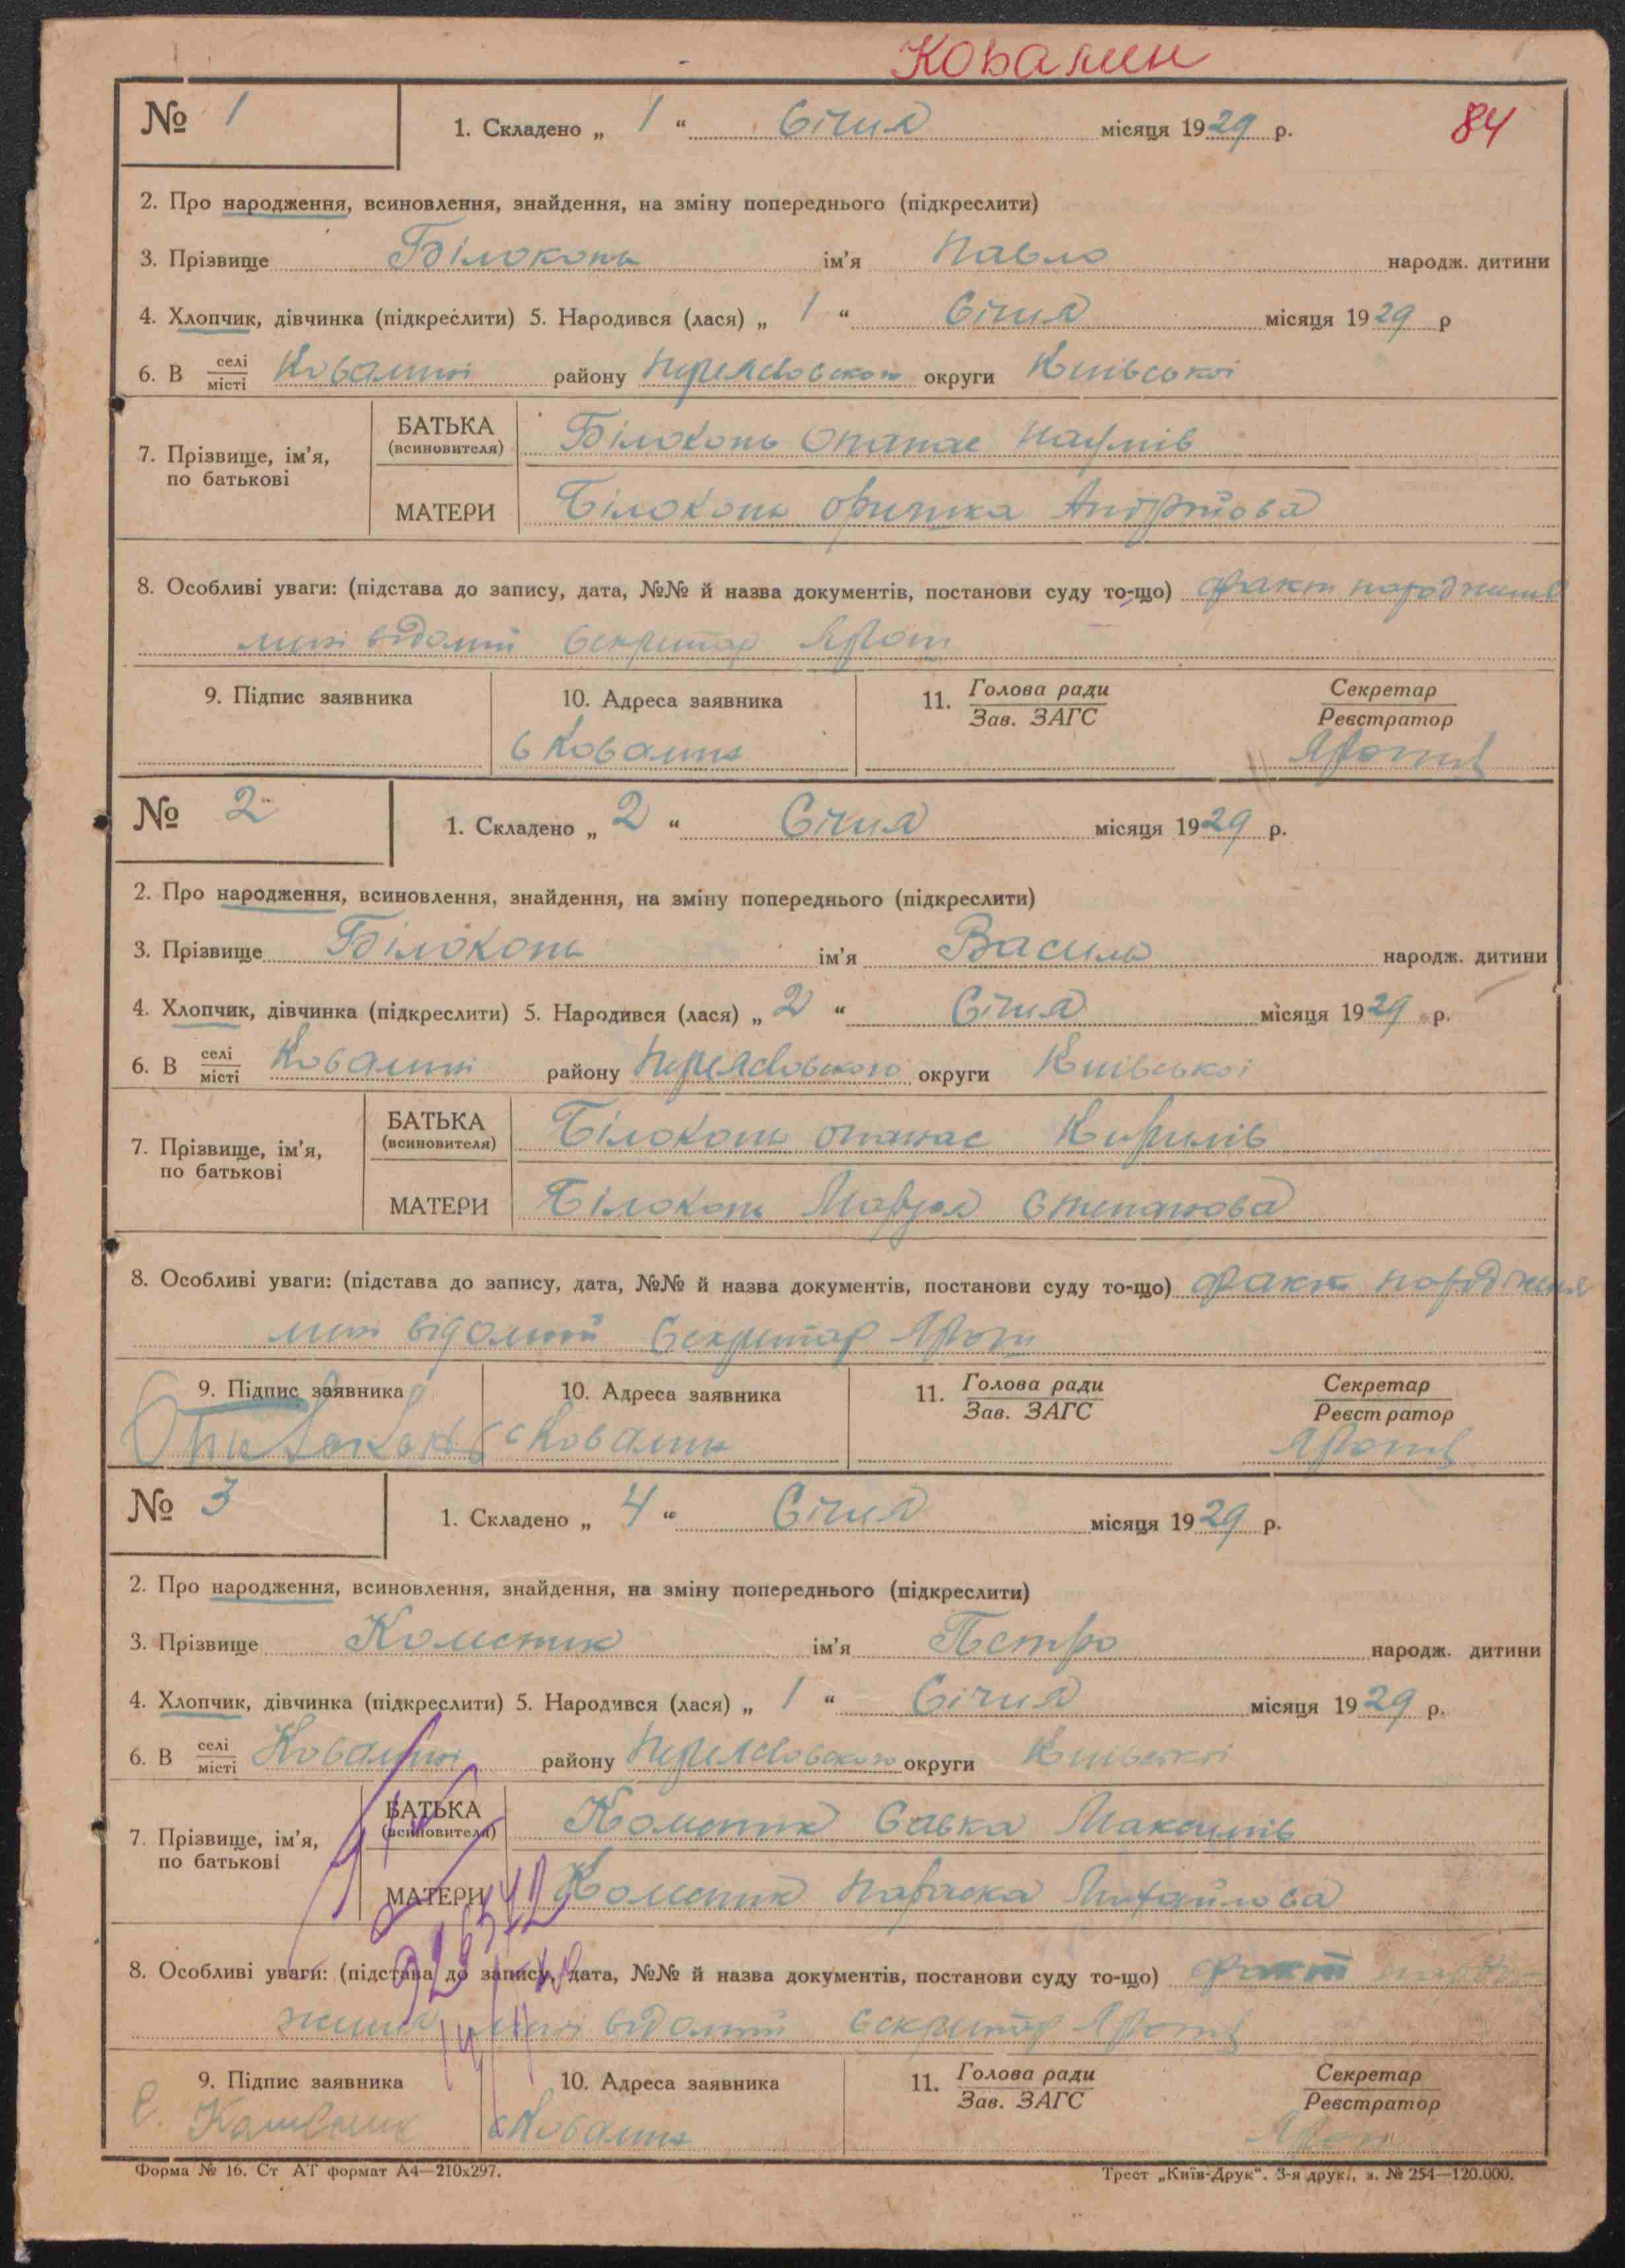 Ковалин
84
№ 1
1. Складено „ 1 “ Січня місяця 1929 р.
2. Про народження, всиновлення, знайдення, на зміну попереднього (підкреслити)
3. Прізвище Білоконь ім'я Павло народж. дитини
4. Хлопчик, дівчинка (підкреслити) 5. Народився (лася) „ 1 “ Січня місяця 1929 р
6. В селі/місті Ковалині району Переяславського округи Київської
7. Прізвище, ім'я, по батькові
БАТЬКА (всиновителя) Білоконь Опанас Наумів
МАТЕРИ Білоконь Оришка Андріїова
8. Особливі уваги: (підстава до запису, дата, №№ й назва документів, постанови суду то-що) факт народження
мені відомий Секретар
9. Підпис заявника 10. Адреса заявника 11. Голова ради/Зав. ЗАГС Секретар/Реєстратор
с Ковалин
№ 2
1. Складено „ 2 “ Січня місяця 1929 р.
2. Про народження, всиновлення, знайдення, на зміну попереднього (підкреслити)
3. Прізвище Білоконь ім'я Василь народж. дитини
4. Хлопчик, дівчинка (підкреслити) 5. Народився (лася) „ 2 “ Січня місяця 1929 р.
6. В селі/місті Ковалині району Переяславського округи Київської
7. Прізвище, ім'я, по батькові
БАТЬКА (всиновителя) Білоконь Опанас Кирилів
МАТЕРИ Білоконь Марія Степанова
8. Особливі уваги: (підстава до запису, дата, №№ й назва документів, постанови суду то-що) факт народження
мені відомий Секретар
9. Підпис заявника 10. Адреса заявника 11. Голова ради/Зав. ЗАГС Секретар/Реєстратор
с Ковалин
№ 3
1. Складено „ 4 “ Січня місяця 1929 р.
2. Про народження, всиновлення, знайдення, на зміну попереднього (підкреслити)
3. Прізвище ім'я Петро народж. дитини
4. Хлопчик, дівчинка (підкреслити) 5. Народився (лася) „ 1 “ Січня місяця 1929 р.
6. В селі/місті Ковалині району Переяславського округи Київської
7. Прізвище, ім'я, по батькові
БАТЬКА (всиновителя) Савка Максимів
МАТЕРИ Параска Михайлова
8. Особливі уваги: (підстава до запису, дата, №№ й назва документів, постанови суду то-що) факт народ
ження мені відомий Секретар
9. Підпис заявника 10. Адреса заявника 11. Голова ради/Зав. ЗАГС Секретар/Реєстратор
с Ковалин
Форма № 16. Ст АТ формат А4—210х297. Трест „Київ-Друк“. 3-я друк., з. № 254—120.000.